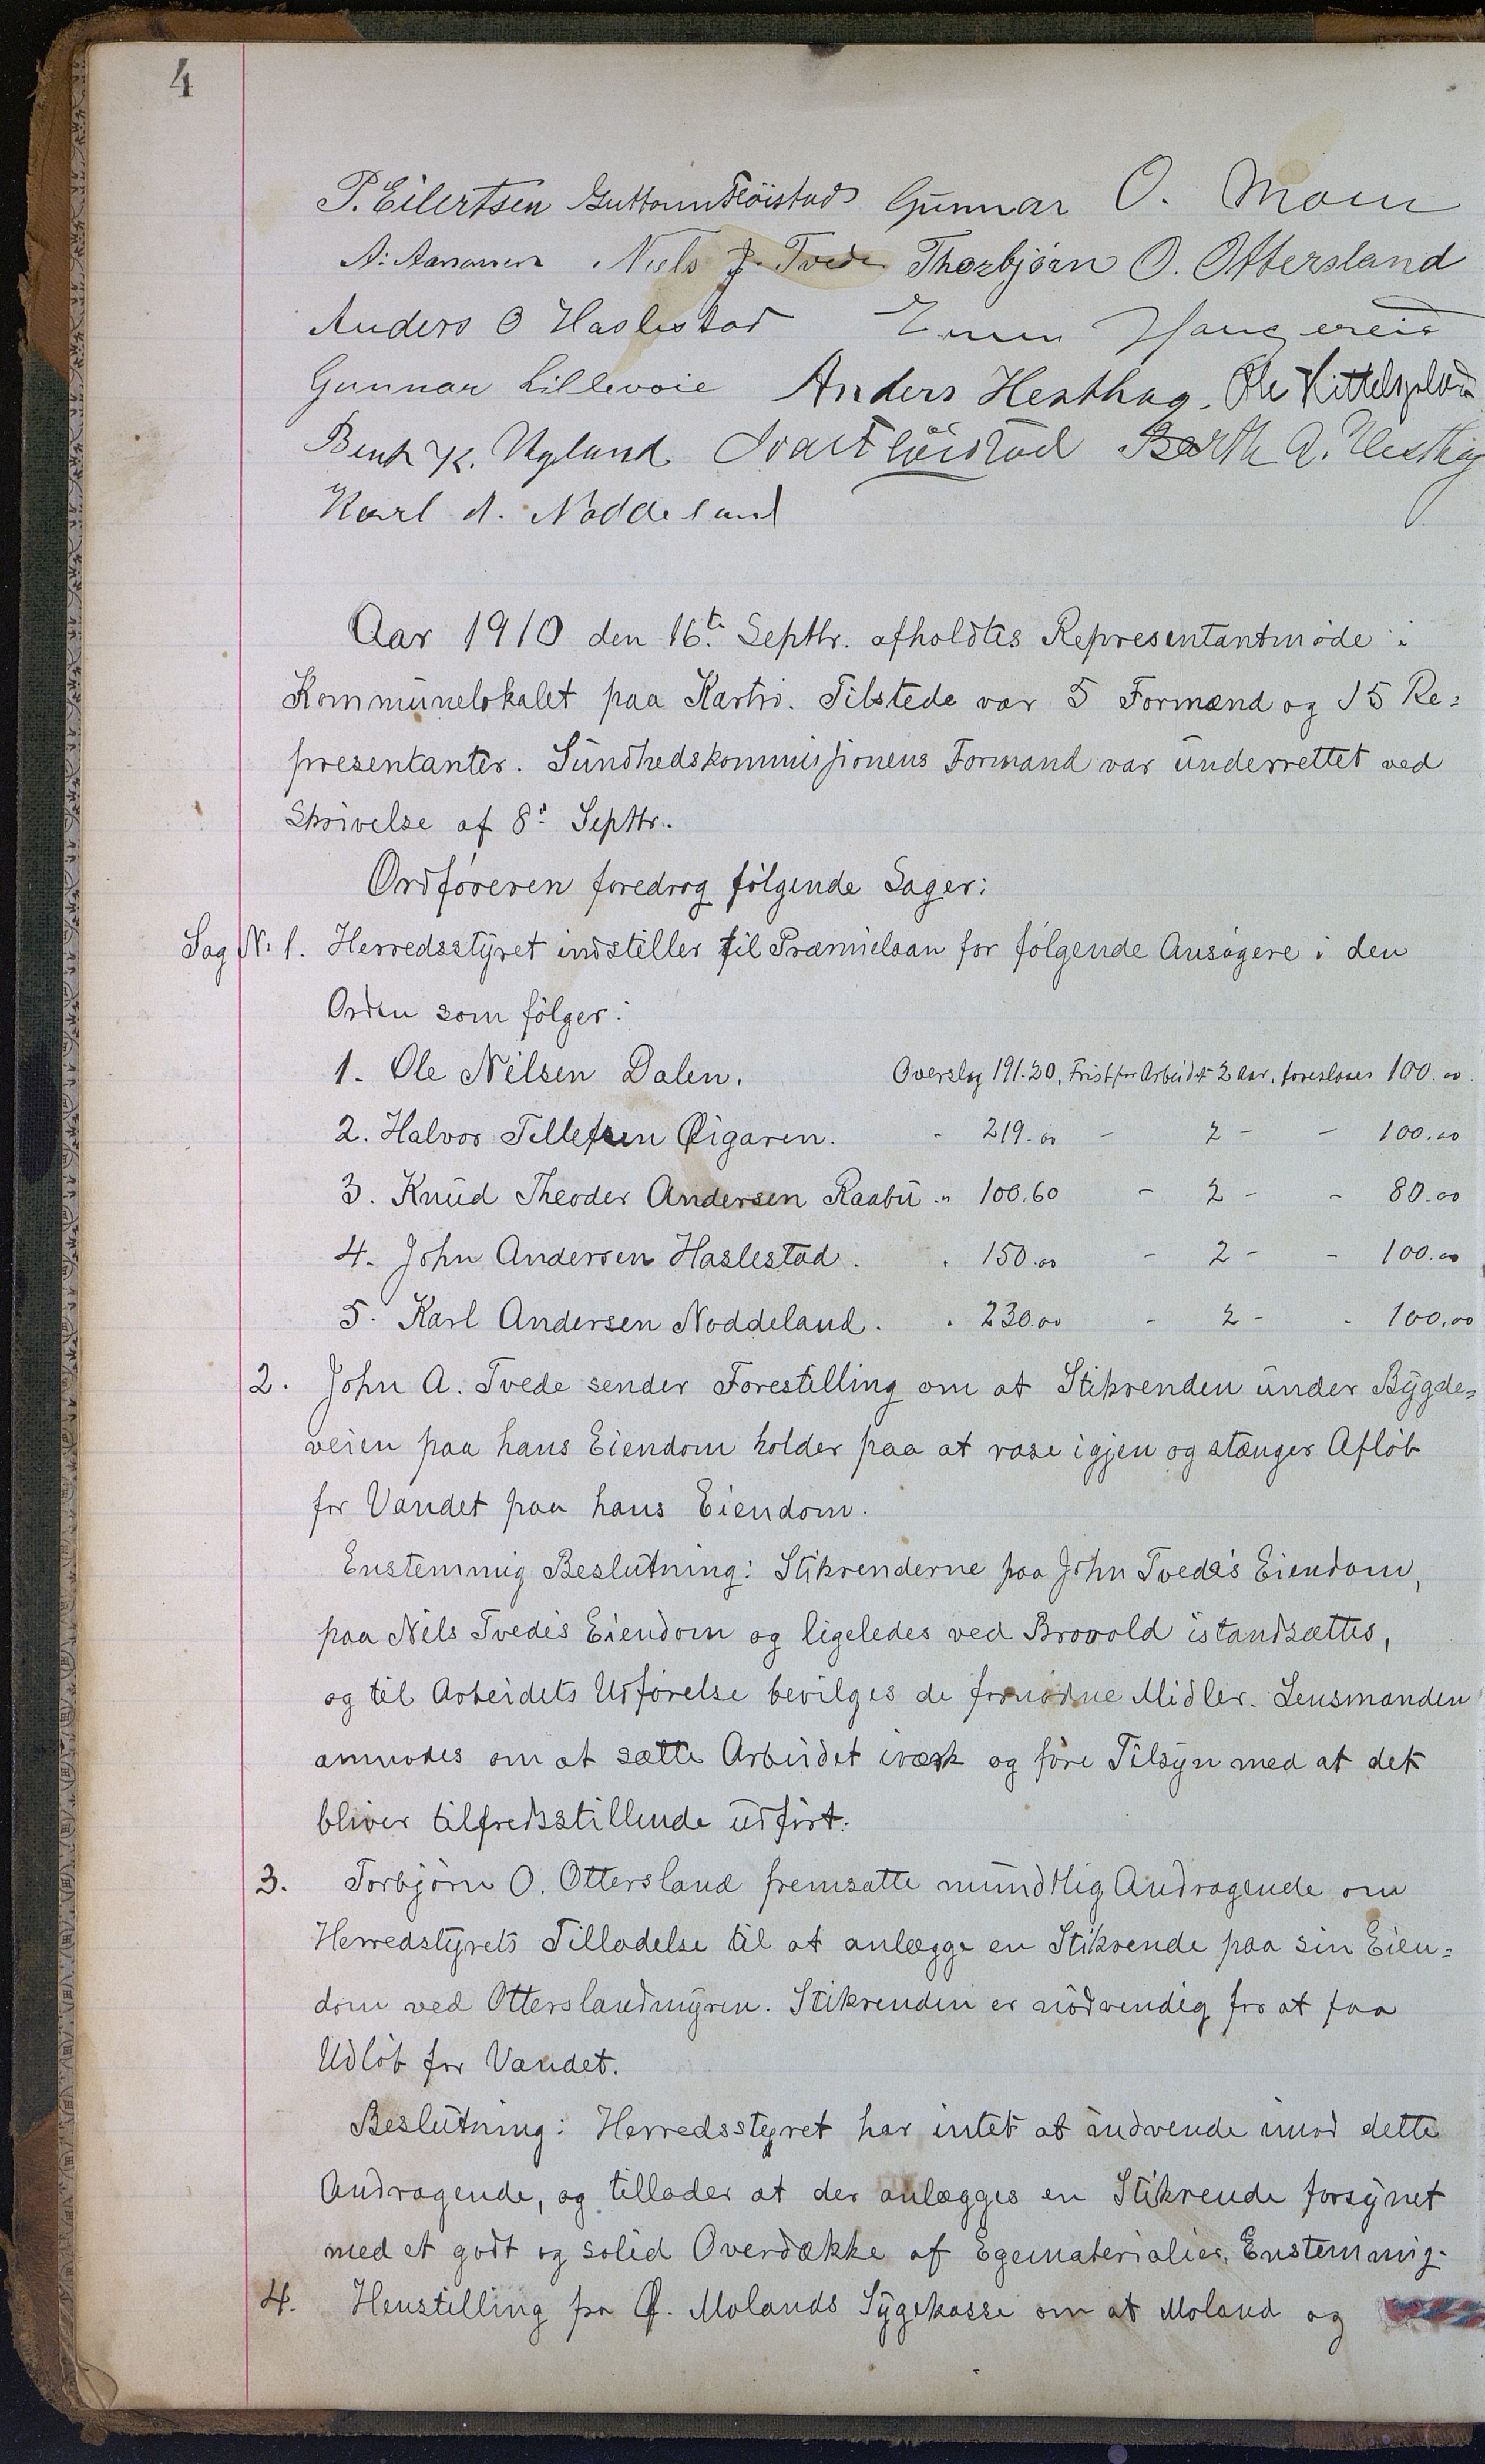 4
P. Eilertsen Guttorm Fløistad Gunnar O. Moen
A. Aanonsen Niels J. Tvede Thorbjørn O. Ottersland
Anders O Haslestad Haugereid
Gunnar Lillevoie Anders Hesthag. Ole Kittelsplad
Bent K. Ugland Ivar Fløistad Berth A. Hesthag
Karl A. Noddeland
Aar 1910 den 16de Septbr. afholdtes Representantmøde i
Kommunelokalet paa Kartrø. Tilstede var 5 Formænd og 15 Re=
presentanter. Sundhedskommissionens Formand var underrettet ved
Skrivelse af 8de Septbr.
Ordføreren foredrog følgende Sager:
Sag N: 1. Herredsstyret indstiller til Præmielaan for følgende Ansøgere i den
Orden som følger:
1. Ole Nilsen Dalen. Overslag 191.20, Frist for Arbeidet 2 Aar, foreslaaes 100.00.
2. Halvor Tellefsen Øigaren. - 219.00 - 2 - - 100.00
3. Knud Theoder Andersen Raabu. " 100.60 - 2 - - 80.00
4. John Andersen Haslestad. . 150.00 - 2 - - 100.00
5. Karl Andersen Noddeland. . 230.00 - 2 - - 100.00
2. John A. Tvede sender Forestilling om at Stikrenden under Bygde=
veien paa hans Eiendom holder paa at rase igjen og stænger Afløb
for Vandet paa hans Eiendom.
Enstemmig Beslutning: Stikrenderne paa John Tvedes Eiendom,
paa Nils Tvedes Eiendom og ligeledes ved Brovold istandsættes,
og til Arbeidets Udførelse bevilges de fornødne Midler. Lensmanden
anmodes om at sætte Arbeidet iværk og føre Tilsyn med at det
bliver tilfredsstillende udført.
3. Torbjørn O. Ottersland fremsatte mundtlig Andragende om
Herredstyrets Tilladelse til at anlægge en Stikrende paa sin Eien=
dom ved Otterslandmyren. Stikrenden er nødvendig for at faa
Udløb for Vandet.
Beslutning: Herredsstyret har intet at indvende imod dette
Andragende, og tillader at der anlægges en Stikrende forsynet
med et godt og solid Overdække af Egematerialier. Enstemmig.
4. Henstilling fra Ø. Molands Sygekasse om at Moland og